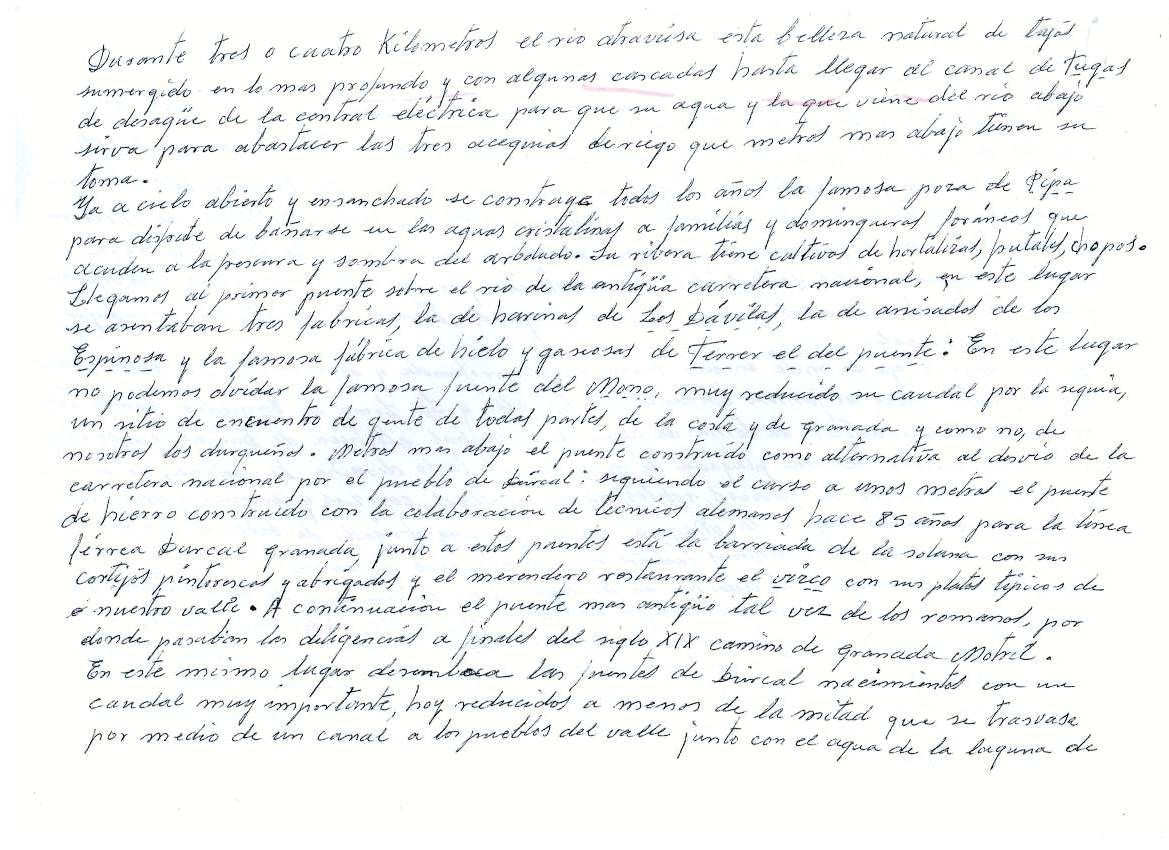 Durante tres o cuatro Kilometros el rio atraviesa esta belleza natural de tajos
sumergido en lo mas profundo y con algunas cascadas hasta llegar al canal de fugas
de desagüe de la central eléctrica para que su agua y la que viene del rio abajo
sirva para abastacer las tres acequias de riego que metros mas abajo tienen su
toma.
Ya a cielo abierto y ensanchado se construye todos los años la famosa poza de Pipa
para disfrute de bañarse en las aguas cristalinas a familias y domingueros foráneos que
acuden a la frescura y sombra del arbolado. Su ribera tiene cultivos de hortalizas, frutales, chopos.
Llegamos al primer puente sobre el rio de la antigüa carretera nacional, en este lugar
se asentaban tres fabricas, la de harinas de Los Dávilas, la de anisados de los
Espinosa y la famosa fábrica de hielo y gaseosas de Terrer el del puente: En este lugar
no podemos olvidar la famosa fuente del Mono, muy reducido su caudal por la sequia,
un sitio de encuentro de gente de todas partes, de la costa y de granada y como no, de
nosotros los durqueños. Metros mas abajo el puente construído como alternativa al desvio de la
carretera nacional por el pueblo de Dúrcal: siguiendo el curso a unos metros el puente
de hierro construido con la colaboración de técnicos alemanes hace 85 años para la línea
férrea Durcal granada, junto a estos puentes está la barriada de la solana con sus
cortijos pintorescos y abrigados y el merendero restaurante el vizco con sus platos típicos de
nuestro valle. A continuación el puente mas antigüo tal vez de los romanos, por
donde pasaban las diligencias a finales del siglo XIX camino de granada Motril.
En este mismo lugar desemboca las fuentes de Dúrcal nacimientos con un
caudal muy importante, hoy reducidos a menos de la mitad que se trasvasa
por medio de un canal a los pueblos del valle junto con el agua de la laguna de